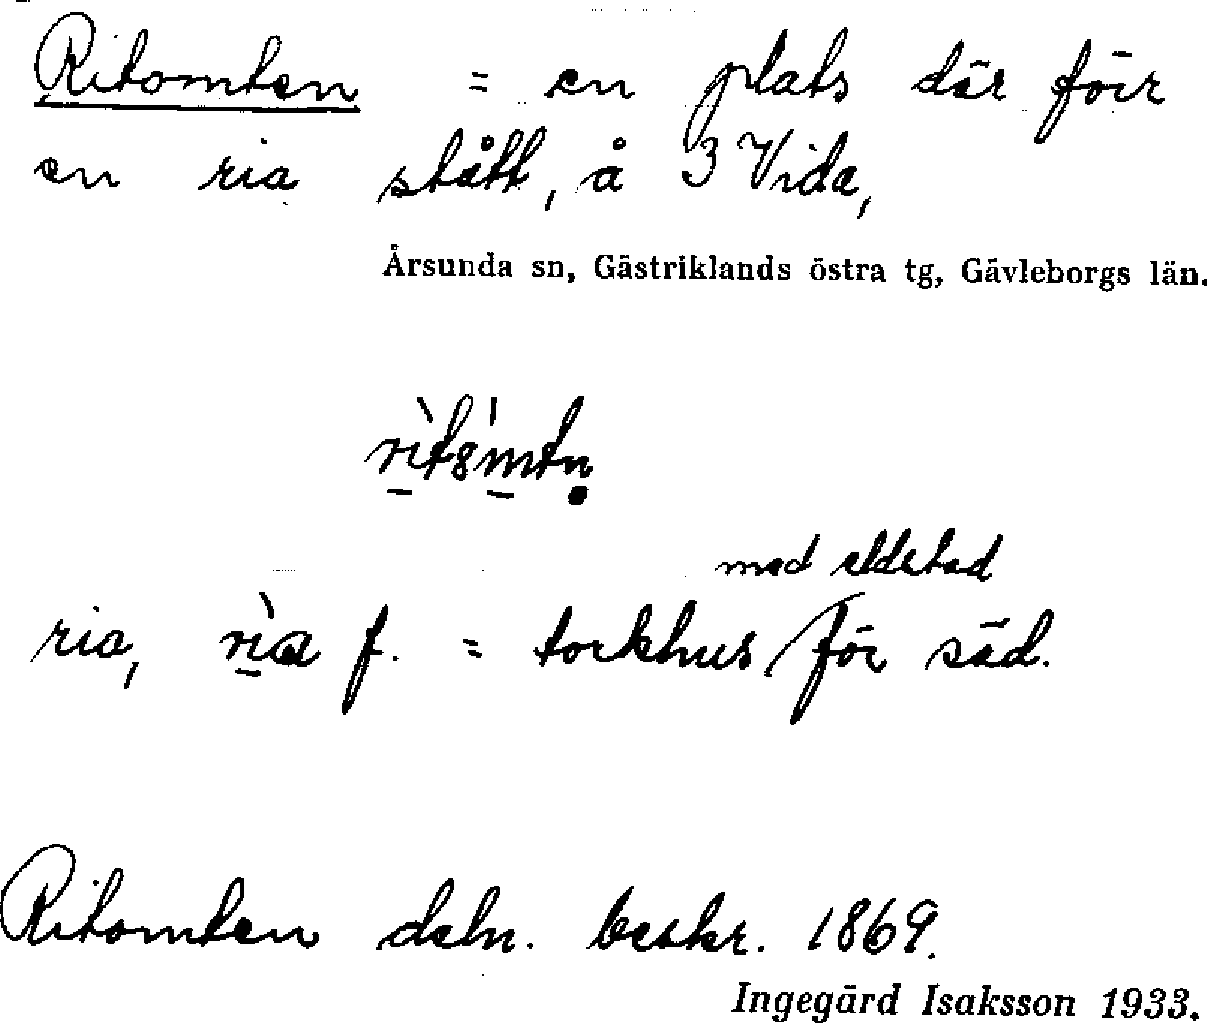 Ritomten = en plats där förr
en ria stått, å 3 Vida,
Årsunda sn, Gästriklands östra tg, Gävleborgs län.
med eldstad
ria, f. = torkhus / för säd.
Ritomten deln. beskr. 1869.
Ingegärd Isaksson 1933.